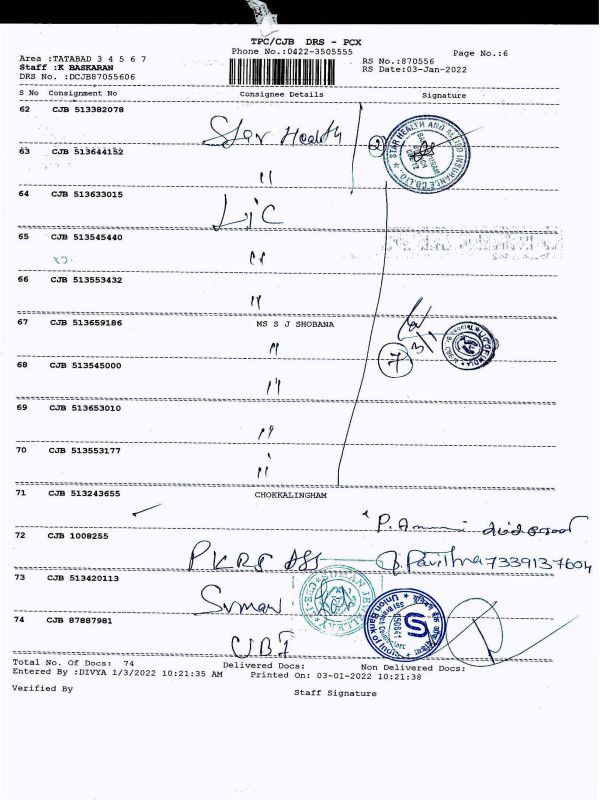 TPC/CJB DRS - PCX
Phone No.:0422-3505555
Page No.:6
Area :TATABAD 3 4 5 6 7
Staff :K BASKARAN
DRS No. :DCJB87055606
RS No.:870556
RS Date:03-Jan-2022
S No Consignment No Consignee Details Signature
62 CJB 513382078
Star Health
STAR HEALTH AND ALLIED INSURANCE CO. LTD.
2
63 CJB 513644152
"
64 CJB 513633015
LIC
65 CJB 513545440
"
66 CJB 513553432
"
67 CJB 513659186 MS S J SHOBANA
"
3/1
7
68 CJB 513545000
"
69 CJB 513653010
"
70 CJB 513553177
"
71 CJB 513243655 CHOKKALINGHAM
72 CJB 1008255
PKRS
Pavithra 7339137604
73 CJB 513420113
Suman
74 CJB 87887981
Union Bank
Total No. Of Docs: 74 Delivered Docs: Non Delivered Docs:
Entered By :DIVYA 1/3/2022 10:21:35 AM Printed On: 03-01-2022 10:21:38
Verified By Staff Signature